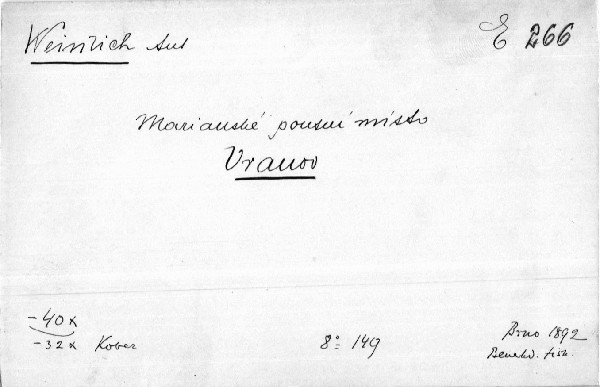 Weinrich Ant
E 266
Marianské poutní místo
Vranov
-40x
-32x Kober
8° 149
Brno 1892
Bened. tisk.